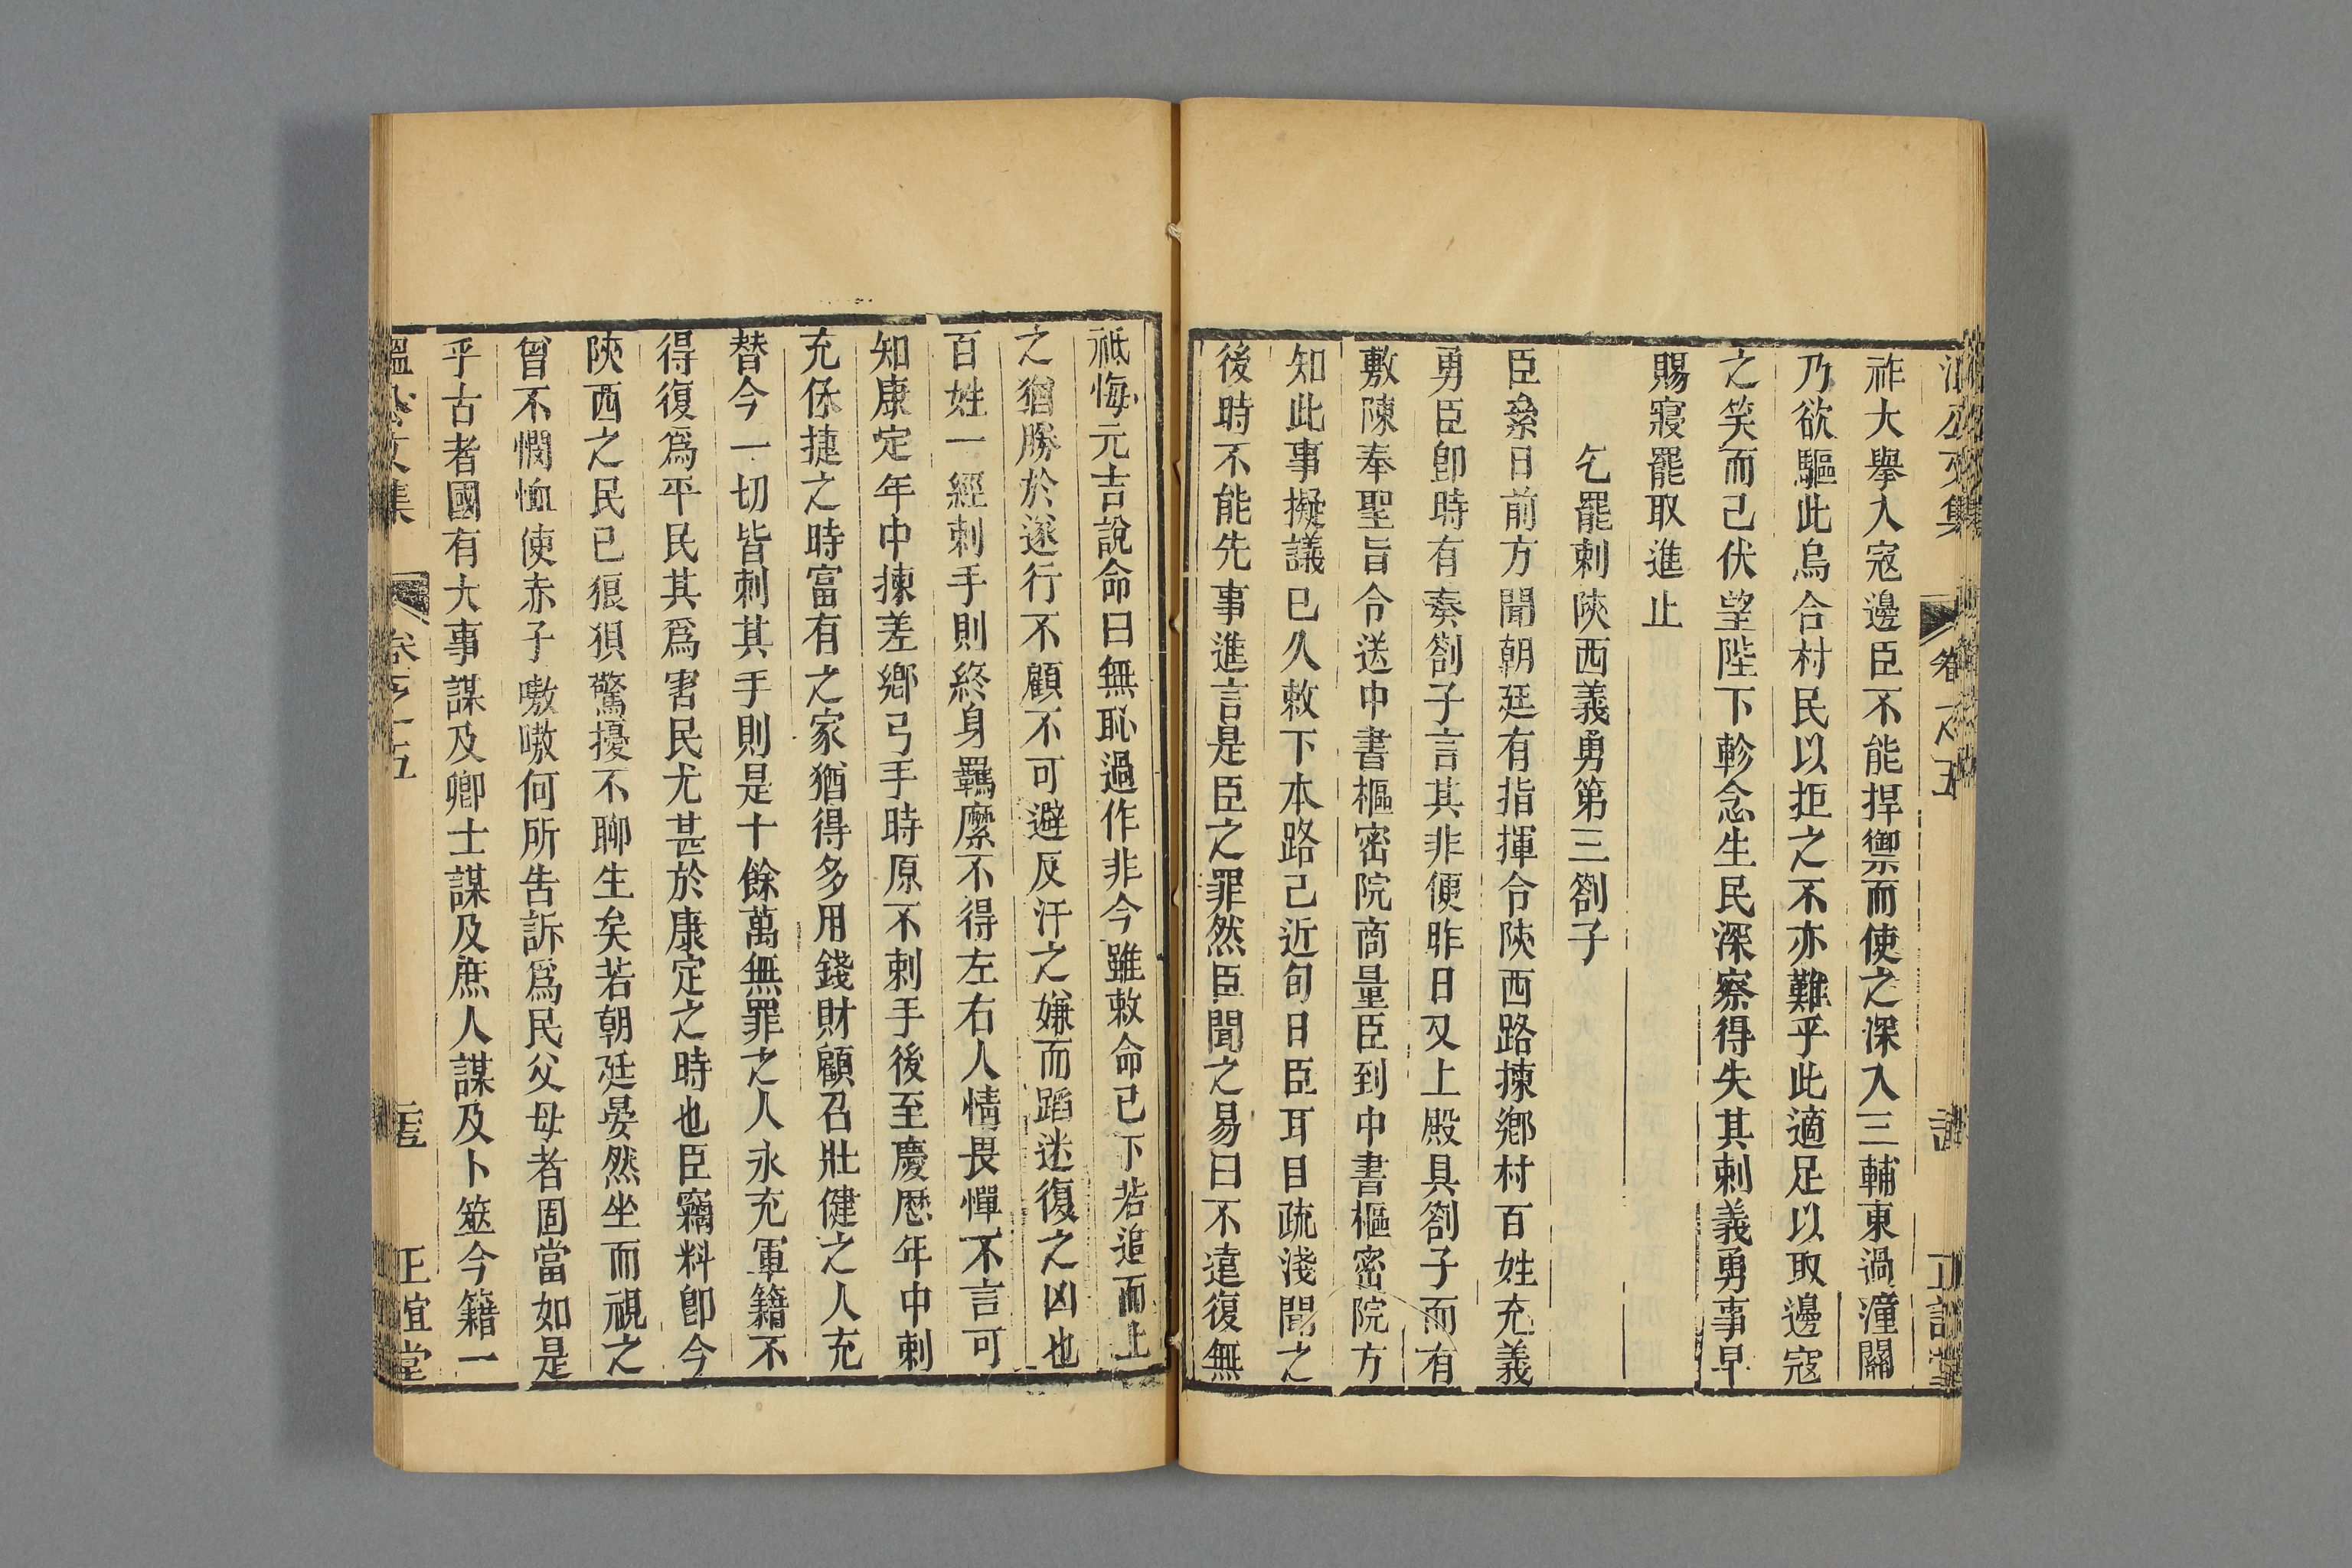 祚大舉入寇邊臣不能捍禦而使之深入三輔東過潼關
乃欲驅此烏合村民以拒之不亦難乎此適足以取邊寇
之笑而已伏望陛下軫念生民深察得失其刺義勇事早
賜寢罷取進止
乞罷刺陝西義勇第三劄子
臣絫日前方聞朝廷有指揮令陝西路揀鄉村百姓充義
勇臣卽時有奏劄子言其非便昨日又上殿具劄子而有
敷陳奉聖旨令送中書樞密院商量臣到中書樞密院方
知此事擬議已久敕下本路已近旬日臣耳目疏淺聞之
後時不能先事進言是臣之罪然臣聞之易曰不遠復無
祗悔元吉說命曰無恥過作非今雖敕命已下若追而止
之猶勝於遂行不顧不可避反汗之嫌而蹈迷復之凶也
百姓一經刺手則終身羈縻不得左右人情畏憚不言可
知康定年中揀差鄉弓手時原不刺手後至慶歷年中刺
充保捷之時富有之家猶得多用錢財顧召壯健之人充
替今一切皆刺其手則是十餘萬無罪之人永充軍籍不
得復爲平民其爲害民尤甚於康定之時也臣竊料卽今
陝西之民已狼狽驚擾不聊生矣若朝廷晏然坐而視之
曾不憫恤使赤子嗷嗷何所告訴爲民父母者固當如是
乎古者國有大事謀及卿士謀及庶人謀及卜筮今籍一
溫公文集 卷之五 正誼堂